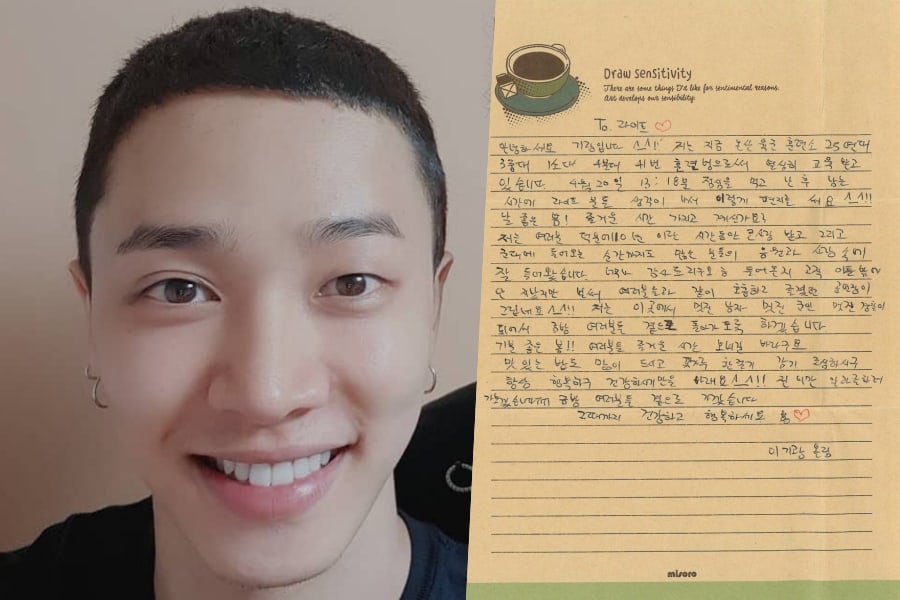 Draw Sensitivity
There are some things I'd like for sentimental reasons.
Art develops our sensibility.
To. 라이트 ♡
안녕하세요 기광입니다 ^^!! 저는 지금 논산 육군 훈련소 25연대
3중대 1소대 4분대 41번 훈련병으로써 열심히 교육 받고
있습니다 4월 20일 13:18분 점심을 먹고 난 후 남는
시간에 라이트 분들 생각이 나서 이렇게 편지를 써요 ^^!!
날 좋은 봄! 즐거운 시간 가지고 계신가요?
저는 여러분 덕분에 10년 이란 시간동안 큰사랑 받고 그리고
군대에 들어오는 순간까지도 많은 분들의 응원과 사랑 속에
잘 들어왔습니다 너무나 감사드리구요 음 들어온지 2주
난 지났지만 벌써 여러분들과 같이 호흡하고 공연한
그립네요 ^^!! 저는 이곳에서 멋진 남자 멋진 군인 멋진
되어서 금방 여러분들 곁으로 돌아가도록 하겠습니다
기분 좋은 봄!! 여러분들 즐거운 시간 보내길 바라구요
맛있는 밥도 많이 드시고 환절기 감기 조심하시구
항상 행복하구 건강하시기만을 바래요 ^^!! 긴 시간
금방 여러분들 곁으로 가겠습니다
그때까지 건강하고 행복하세요 ♡
이기광 올림
misoro